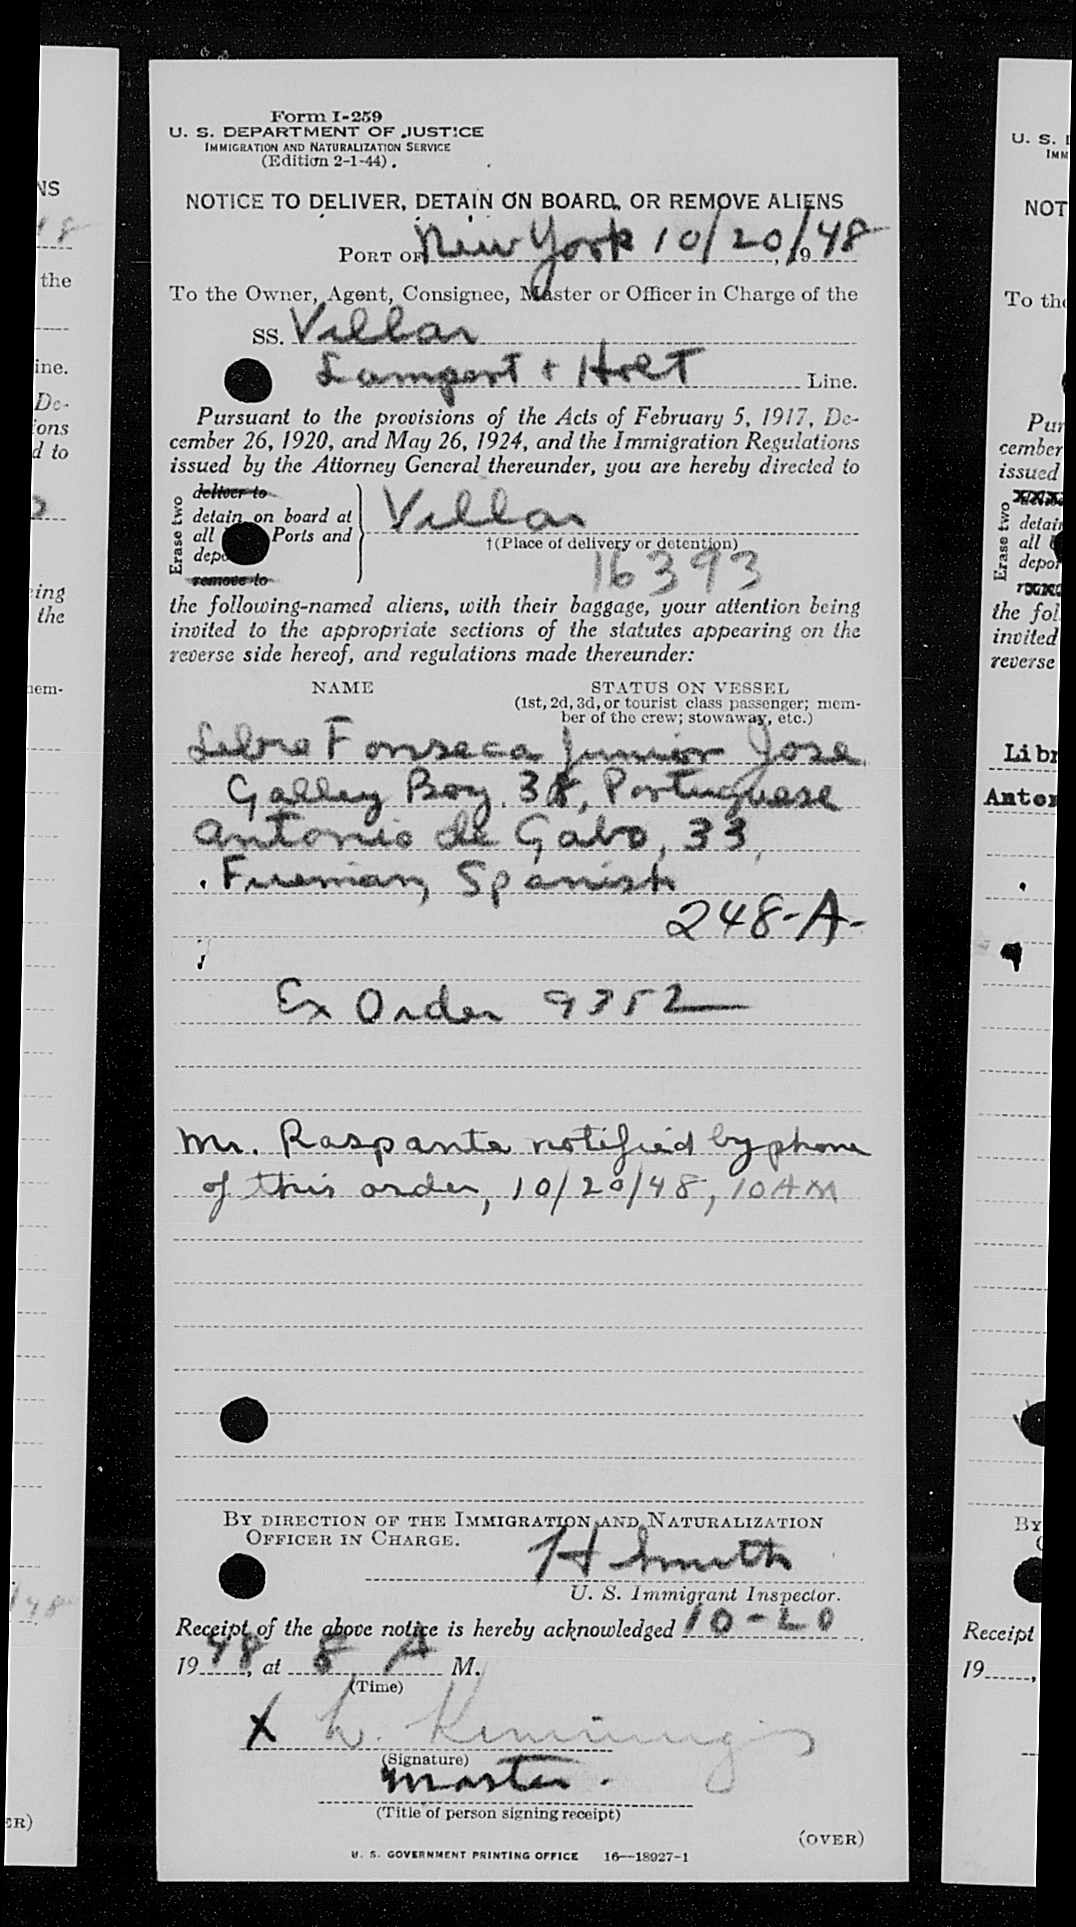 Form I-259
U. S. DEPARTMENT OF JUSTICE
IMMIGRATION AND NATURALIZATION SERVICE
(Edition 2-1-44)
NOTICE TO DELIVER, DETAIN ON BOARD, OR REMOVE ALIENS
PORT OF New York 10/20/, 1948
To the Owner, Agent, Consignee, Master or Officer in Charge of the
SS. Villar
Lamport + Holt Line.
Pursuant to the provisions of the Acts of February 5, 1917, De-
cember 26, 1920, and May 26, 1924, and the Immigration Regulations
issued by the Attorney General thereunder, you are hereby directed to
Erase two
deliver to
detain on board at
all Ports and
remove to
Villar
†(Place of delivery or detention)
16393
the following-named aliens, with their baggage, your attention being
invited to the appropriate sections of the statutes appearing on the
reverse side hereof, and regulations made thereunder:
NAME STATUS ON VESSEL
(1st, 2d, 3d, or tourist class passenger; mem-
ber of the crew; stowaway, etc.)
Libro Fonseca Junior Jose
Galley Boy, 38, Portuguese
Antonio de Gabo, 33,
Fireman, Spanish
248-A-
Ex Order 9352
Mr. Raspante notified by phone
of this order, 10/20/48, 10 AM
BY DIRECTION OF THE IMMIGRATION AND NATURALIZATION
OFFICER IN CHARGE.
H Smith
U. S. Immigrant Inspector.
Receipt of the above notice is hereby acknowledged 10-20
1948, at 8 A M.
(Time)
X
(Signature)
Master.
(Title of person signing receipt)
(OVER)
U. S. GOVERNMENT PRINTING OFFICE 16—18927-1